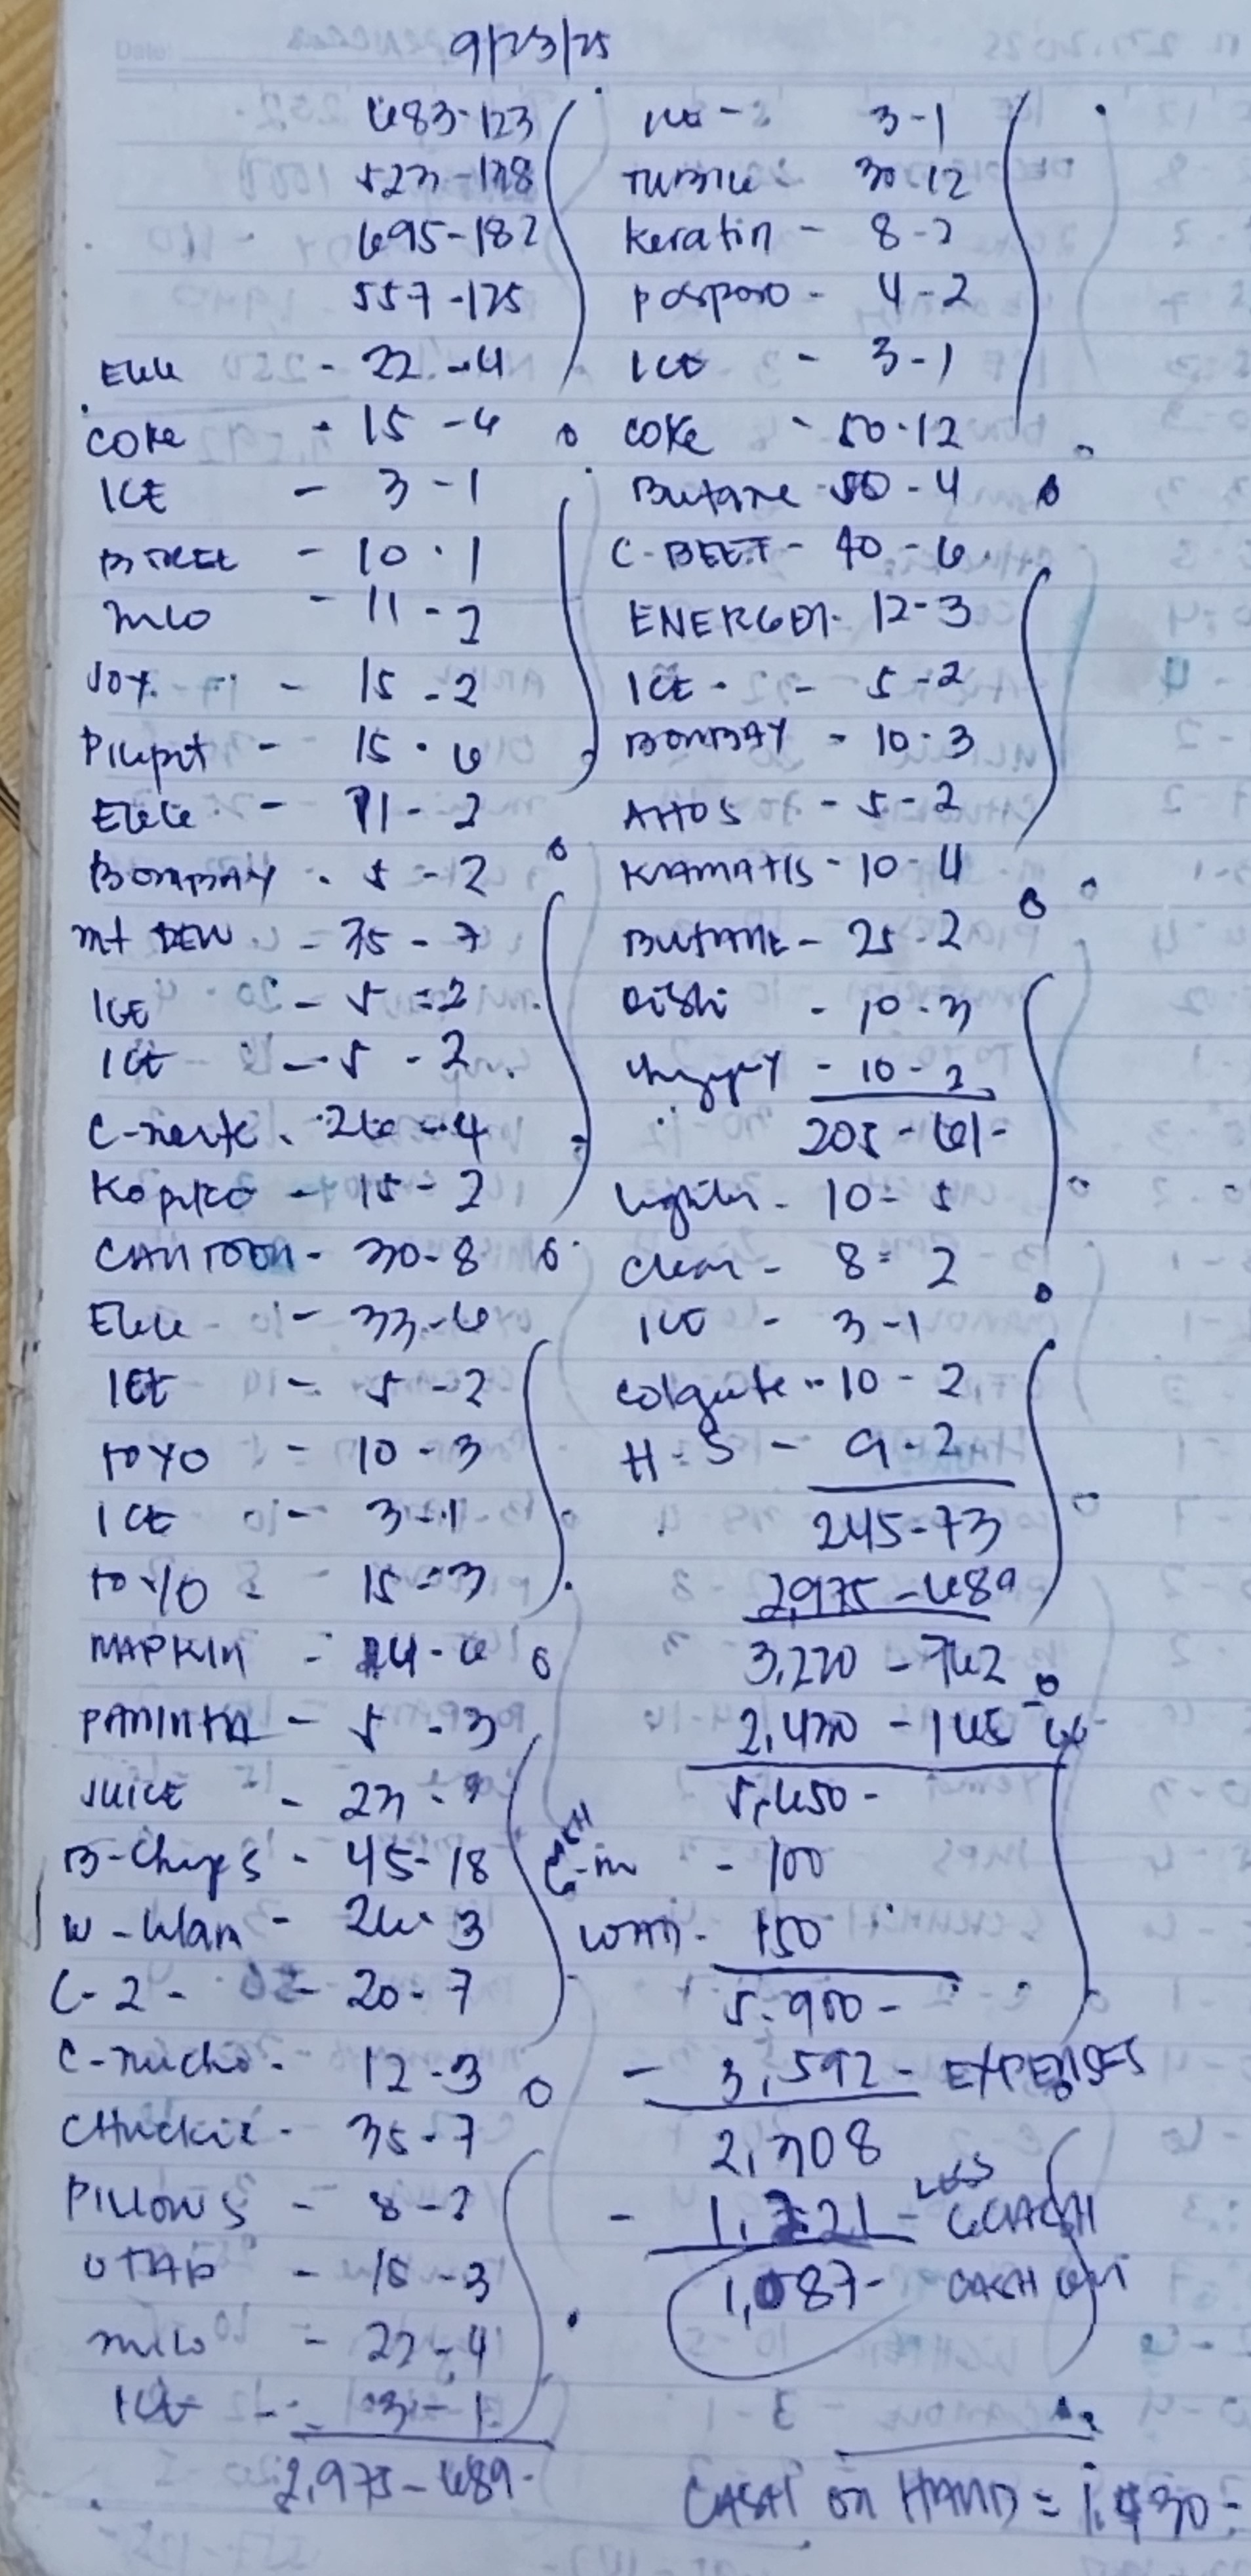 9/23/25
683-123
523-138
695-182
557-125
Elle - 22-4
COKE - 15-6
ICE - 3-1
10-1
Milo - 11-2
JOY - 15-2
15-6
Elele - 11-2
BOMBAY - 5-2
Mt DEW - 35-7
ICE - 5-2
ICE - 5-2
26-4
Kopiko - 15-2
CANTOON - 30-8
Elle - 33-6
ICE - 5-2
TOYO - 10-3
ICE - 3-1
TOYO - 15-3
NAPKIN - 24-6
PAMINTA - 5-3
JUICE - 23-9
B-Chips - 45-18
26-3
C-2 - 20-7
C-nucho - 12-3
CHuckie - 35-7
PILLOWS - 8-2
OTAP - 15-3
MILO - 22-4
ICE - 3-1
2,975-689-
ICE - 3-1
30-12
Keratin - 8-2
posporo - 4-2
ICE - 3-1
COKE - 50-12
Butane - 50-4
C-BEEF - 40-6
ENERGEN - 12-3
ICE - 5-2
BOMBAY - 10-3
10-4
BUTANE - 25-2
Oishi - 10-3
10-2
205-61-
Lighter - 10-5
Clear - 8-2
ICE - 3-1
Colgate - 10-2
H-S - 9-2
245-73
2,975-689
3,220-762
2,430-165
5,650-
100
150
5,900-
- 3,592- EXPENSES
2,308
- 1,221- LESS GCASH
1,087- CASH
CASH on HAND = 1,430-